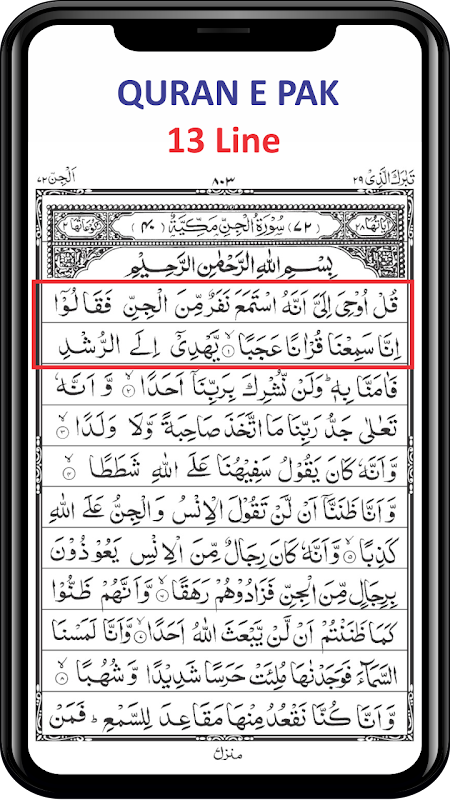 QURAN E PAK
13 Line
تَبٰرَكَ الَّذِیْ ۲۹
۸۰۳
اَلْجِنّ ۷۲
اٰیَاتُهَا ۲۸
(۷۲) سُوْرَةُ الْجِنِّ مَكِّیَّةٌ (۴۰)
رُكُوْعَاتُهَا ۲
بِسْمِ اللّٰهِ الرَّحْمٰنِ الرَّحِیْمِ
قُلْ اُوْحِیَ اِلَیَّ اَنَّهُ اسْتَمَعَ نَفَرٌ مِّنَ الْجِنِّ فَقَالُوْۤا
اِنَّا سَمِعْنَا قُرْاٰنًا عَجَبًا ۙ۱ یَّهْدِیْۤ اِلَی الرُّشْدِ
فَاٰمَنَّا بِهٖ ؕ وَلَنْ نُّشْرِكَ بِرَبِّنَاۤ اَحَدًا ۙ۲ وَّ اَنَّهٗ
تَعٰلٰی جَدُّ رَبِّنَا مَا اتَّخَذَ صَاحِبَةً وَّلَا وَلَدًا ۙ۳
وَّ اَنَّهٗ كَانَ یَقُوْلُ سَفِیْهُنَا عَلَی اللّٰهِ شَطَطًا ۙ۴
وَّ اَنَّا ظَنَنَّاۤ اَنْ لَّنْ تَقُوْلَ الْاِنْسُ وَ الْجِنُّ عَلَی اللّٰهِ
كَذِبًا ۙ۵ وَّ اَنَّهٗ كَانَ رِجَالٌ مِّنَ الْاِنْسِ یَعُوْذُوْنَ
بِرِجَالٍ مِّنَ الْجِنِّ فَزَادُوْهُمْ رَهَقًا ۙ۶ وَّ اَنَّهُمْ ظَنُّوْا
كَمَا ظَنَنْتُمْ اَنْ لَّنْ یَّبْعَثَ اللّٰهُ اَحَدًا ۙ۷ وَّ اَنَّا لَمَسْنَا
السَّمَآءَ فَوَجَدْنٰهَا مُلِئَتْ حَرَسًا شَدِیْدًا وَّ شُهُبًا ۙ۸
وَّ اَنَّا كُنَّا نَقْعُدُ مِنْهَا مَقَاعِدَ لِلسَّمْعِ ؕ فَمَنْ
منزل